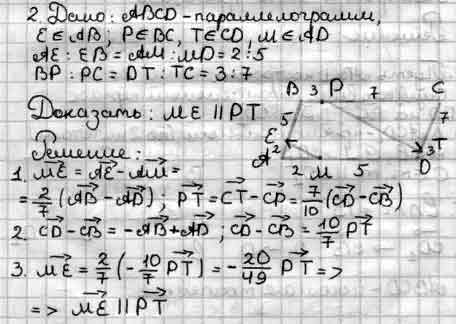 2. Дано: ABCD - параллелограмм,
E∈AB; P∈BC, T∈CD, M∈AD
AE : EB = AM : MD = 2 : 5
BP : PC = DT : TC = 3 : 7
Доказать: ME || PT
B 3 P 7 C
5 7
E T
A 2 3
2 M 5 D
Решение:
1. \vec{ME} = \vec{AE} - \vec{AM} =
= \frac{2}{7}(\vec{AB} - \vec{AD}); \vec{PT} = \vec{CT} - \vec{CP} = \frac{7}{10}(\vec{CD} - \vec{CB})
2. \vec{CD} - \vec{CB} = -\vec{AB} + \vec{AD}; \vec{CD} - \vec{CB} = \frac{10}{7}\vec{PT}
3. \vec{ME} = \frac{2}{7}(-\frac{10}{7}\vec{PT}) = -\frac{20}{49}\vec{PT} =>
=> \vec{ME} || \vec{PT}